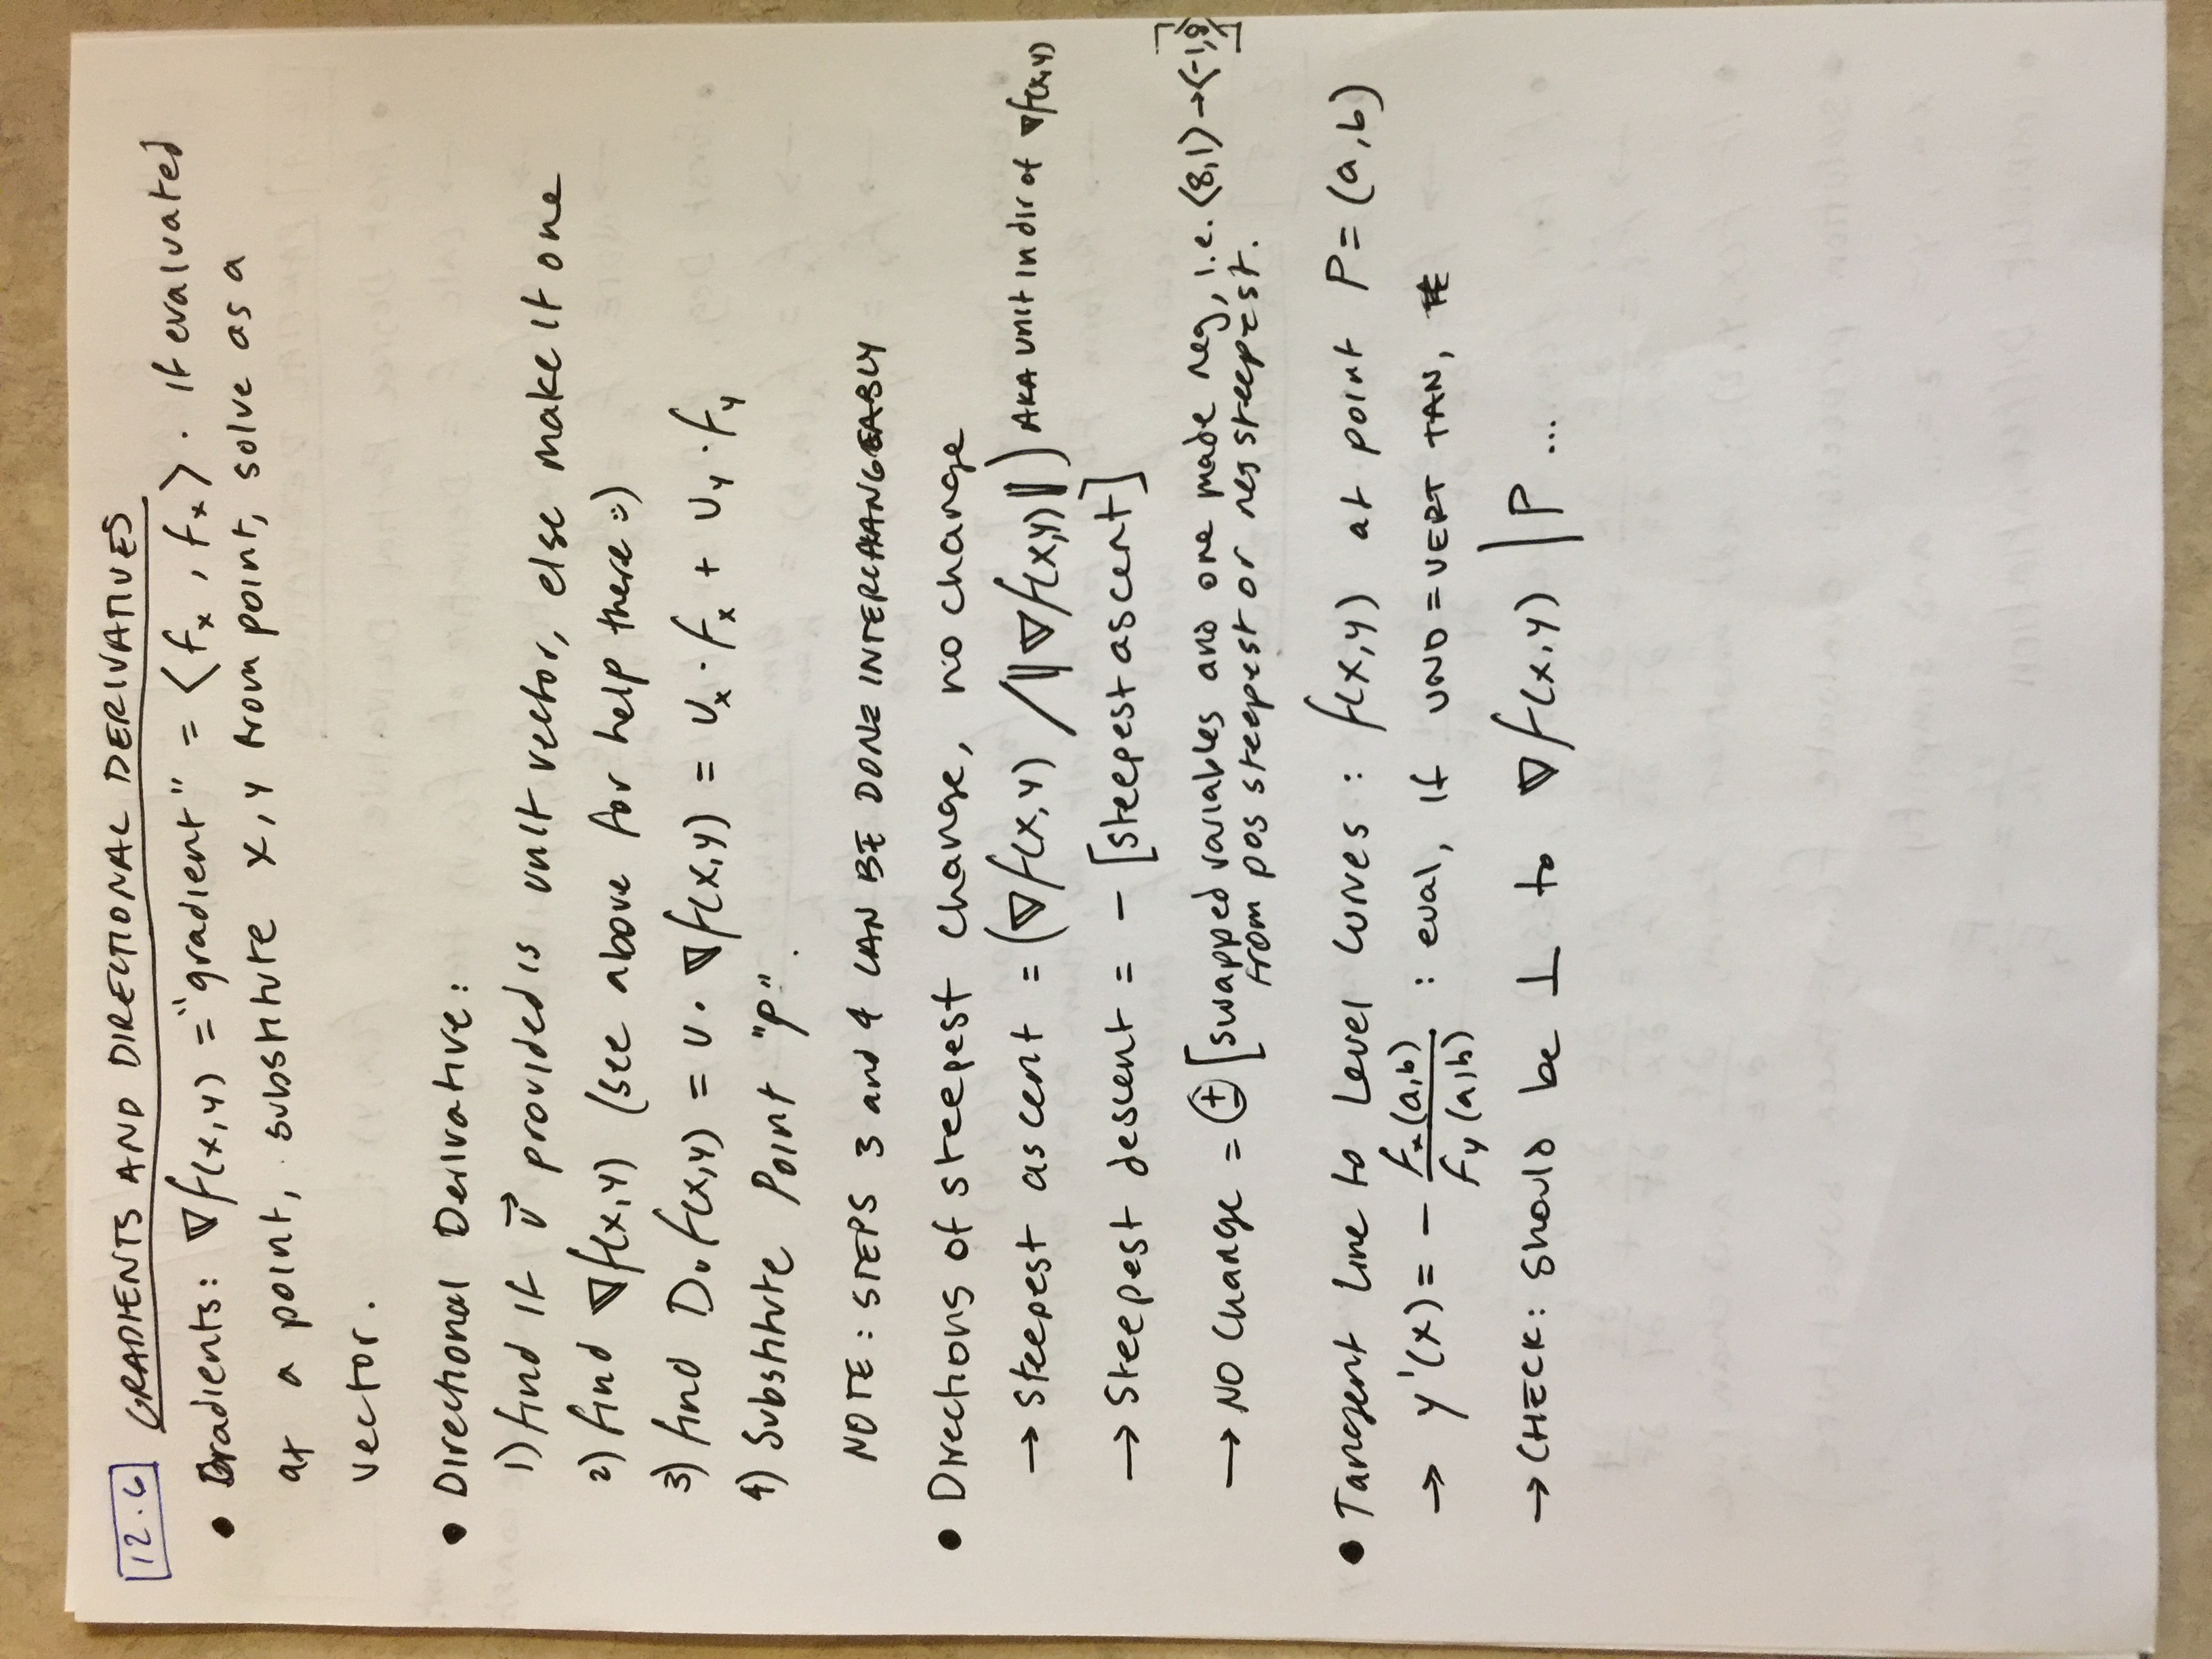 12.6 GRADIENTS AND DIRECTIONAL DERIVATIVES
• Gradients: ∇f(x,y) = "gradient" = ⟨fx, fx⟩. If evaluated
at a point, substitute x,y from point, solve as a
vector.
• Directional Derivative:
1) find if v⃗ provided is unit vector, else make it one
2) find ∇f(x,y) (see above for help there :)
3) find Dᵤf(x,y) = u · ∇f(x,y) = uₓ · fₓ + u_y · f_y
4) Substitute Point "P".
NOTE: STEPS 3 and 4 CAN BE DONE INTERCHANGEABLY
• Directions of steepest change, no change
→ Steepest ascent = (∇f(x,y) / ‖∇f(x,y)‖) AKA unit in dir of ∇f(x,y)
→ Steepest descent = - [steepest ascent]
→ NO Change = ± [swapped variables and one made neg, i.e. ⟨8,1⟩→⟨-1,8⟩]
from pos steepest or neg steepest.
• Tangent Line to Level Curves: f(x,y) at point P = (a,b)
→ y'(x) = - fₓ(a,b) / f_y(a,b) : eval, if UND = VERT TAN,
→ CHECK: Should be ⊥ to ∇f(x,y) | P ...